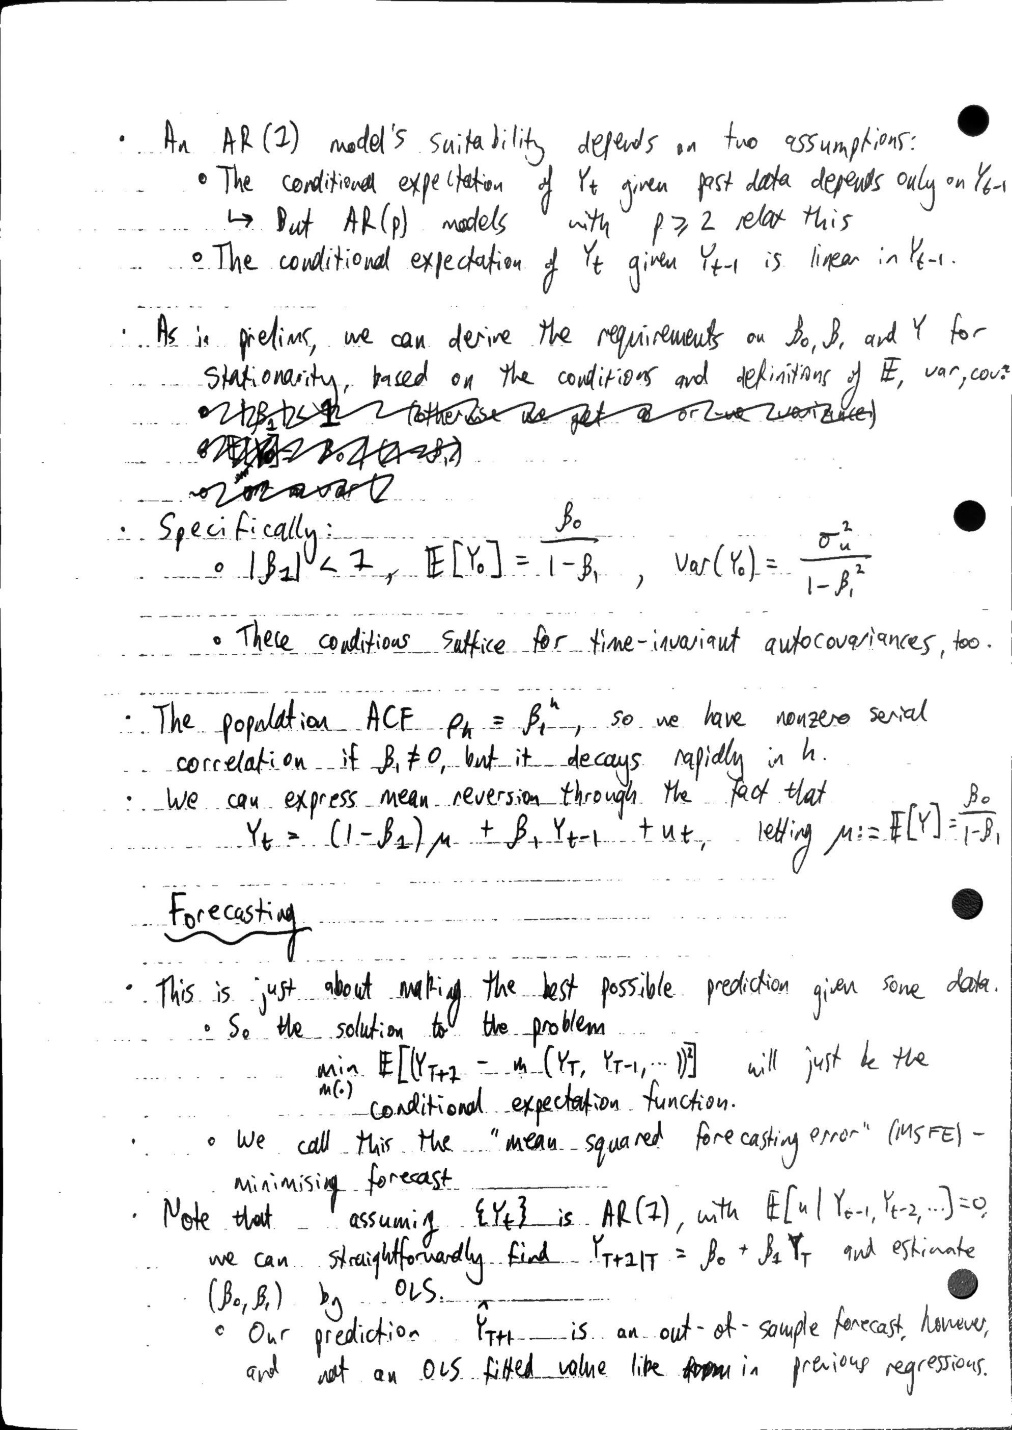 · An AR(1) model's suitability depends on two assumptions:
∘ The conditional expectation of Yₜ given past data depends only on Yₜ₋₁
↳ But AR(p) models with p ⩾ 2 relax this
∘ The conditional expectation of Yₜ given Yₜ₋₁ is linear in Yₜ₋₁.
· As in prelims, we can derive the requirements on β₀, β₁ and Y for
stationarity, based on the conditions and definitions of 𝔼, var, cov:
· Specifically:
∘ |β₁| < 1, 𝔼[Y₀] = β₀/(1-β₁), var(Y₀) = σᵤ²/(1-β₁²)
∘ These conditions suffice for time-invariant autocovariances, too.
· The population ACF ρₕ = β₁ʰ, so we have nonzero serial
correlation if β₁ ≠ 0, but it decays rapidly in h.
· We can express mean reversion through the fact that
Yₜ = (1-β₁)μ + β₁Yₜ₋₁ + uₜ, letting μ := 𝔼[Y] = β₀/(1-β₁)
Forecasting
· This is just about making the best possible prediction given some data.
∘ So the solution to the problem
min m(·) 𝔼[(Y_{T+1} - m(Y_T, Y_{T-1}, ...))²] will just be the
conditional expectation function.
∘ We call this the "mean squared forecasting error" (MSFE) -
minimising forecast
· Note that assuming {Yₜ} is AR(1), with 𝔼[u | Yₜ₋₁, Yₜ₋₂, ...] = 0,
we can straightforwardly find Y_{T+1|T} = β₀ + β₁Y_T and estimate
(β₀, β₁) by OLS.
∘ Our prediction Ŷ_{T+1} is an out-of-sample forecast, however,
and not an OLS fitted value like in previous regressions.